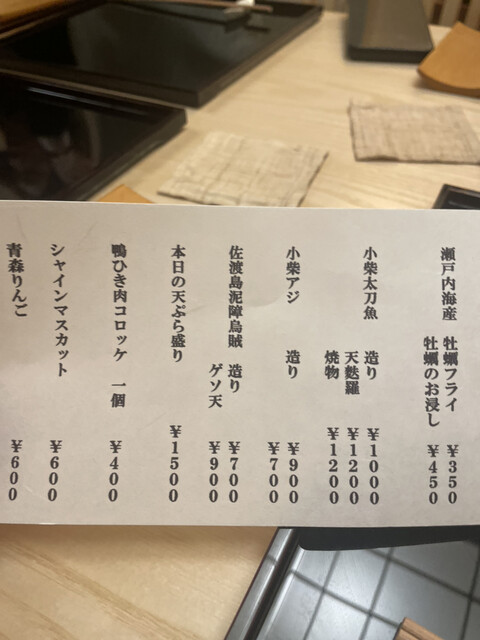 瀬戸内海産 牡蠣フライ ¥350
牡蠣のお浸し ¥450
小柴太刀魚 造り ¥1000
天麩羅 ¥1200
焼物 ¥1200
小柴アジ 造り ¥900
¥700
佐渡島泥障烏賊 造り ¥700
ゲソ天 ¥900
本日の天ぷら盛り ¥1500
鴨ひき肉コロッケ 一個 ¥400
シャインマスカット ¥600
青森りんご ¥600